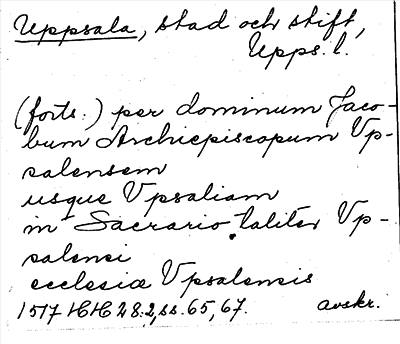 Uppsala, stad och stift,
Upps. l.
(forts.) per dominum Jaco-
bum Archiepiscopum Vp-
salensem
usque Vpsaliam
in Sacrario taliter Vp-
salensi
ecclesiæ Vpsalensis
1517 HH 28:2, ss. 65, 67. avskr.